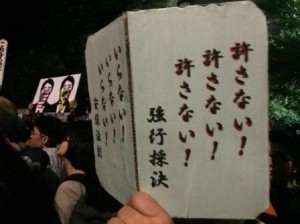 許さない！
許さない！
許さない！
強行採決
いらない！
いらない！
いらない！